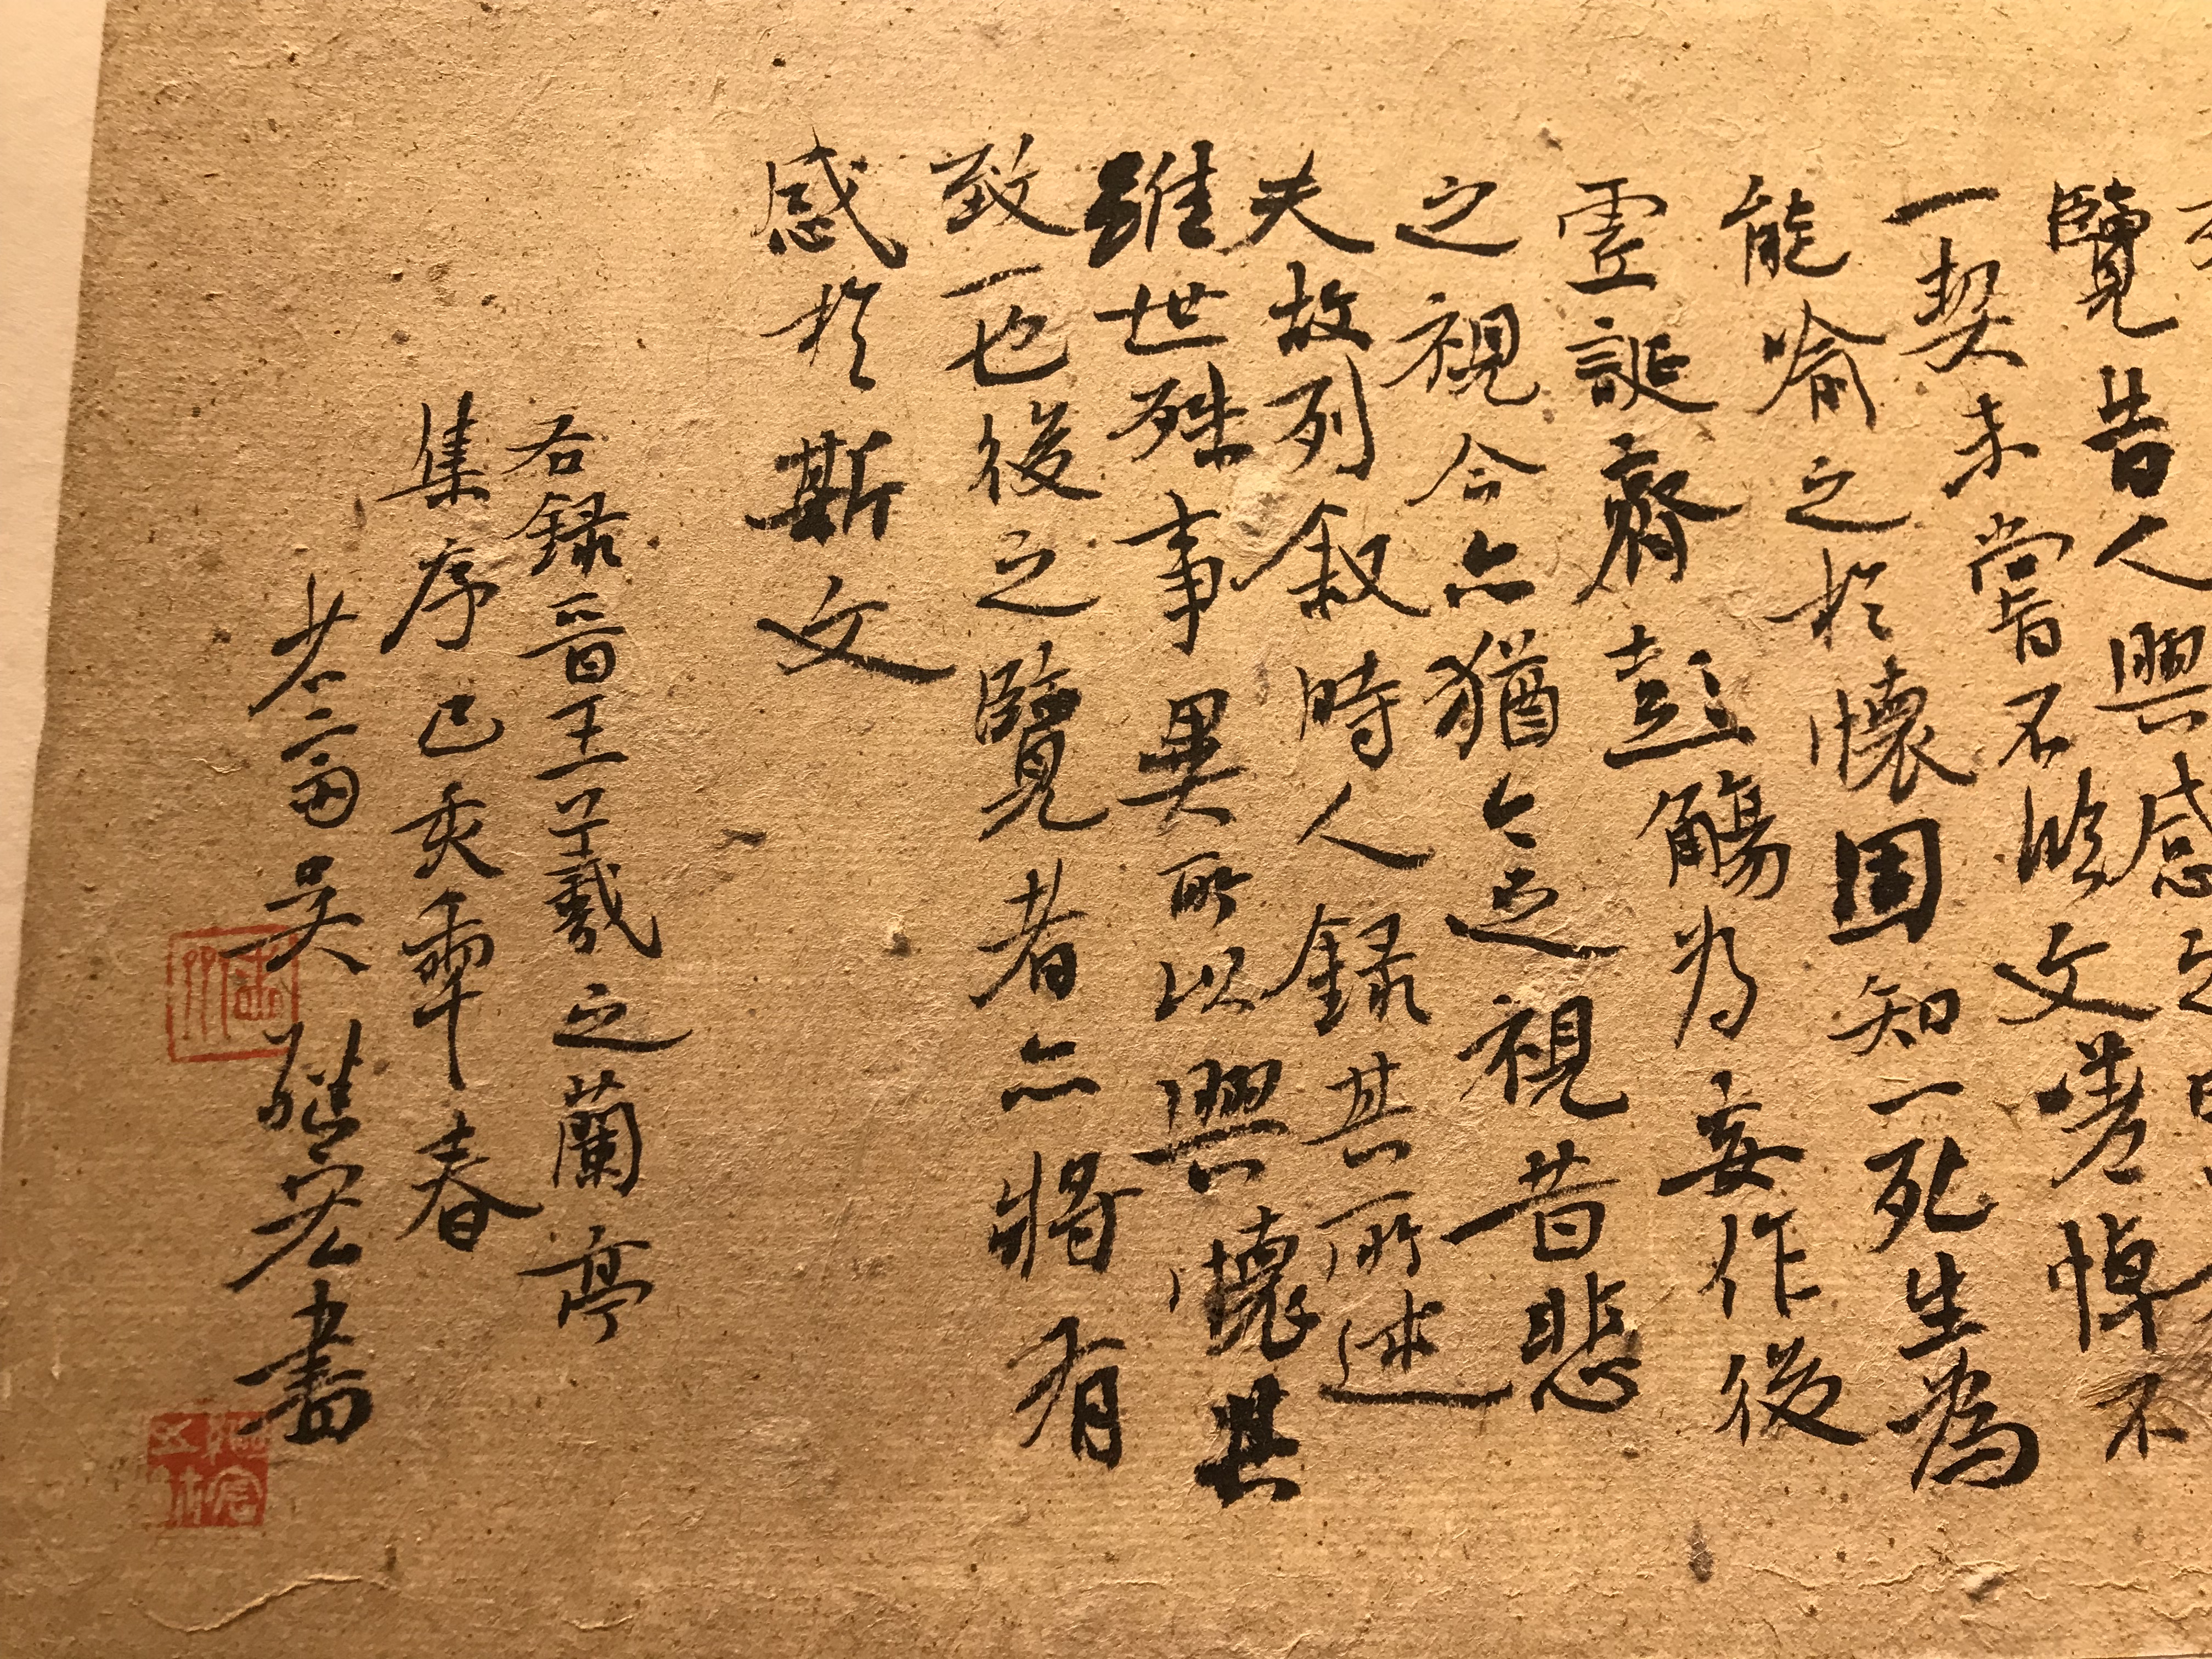 覽昔人興感之
一契未嘗不臨文嗟悼不
能喻之於懷固知一死生為
虛誕齊彭觴為妄作後
之視今亦猶今之視昔悲
夫故列敘時人録其所述
雖世殊事異所以興懷其
致一也後之覽者亦將有
感於斯文
右録晉王羲之蘭亭
集序己亥春
吳継宏書